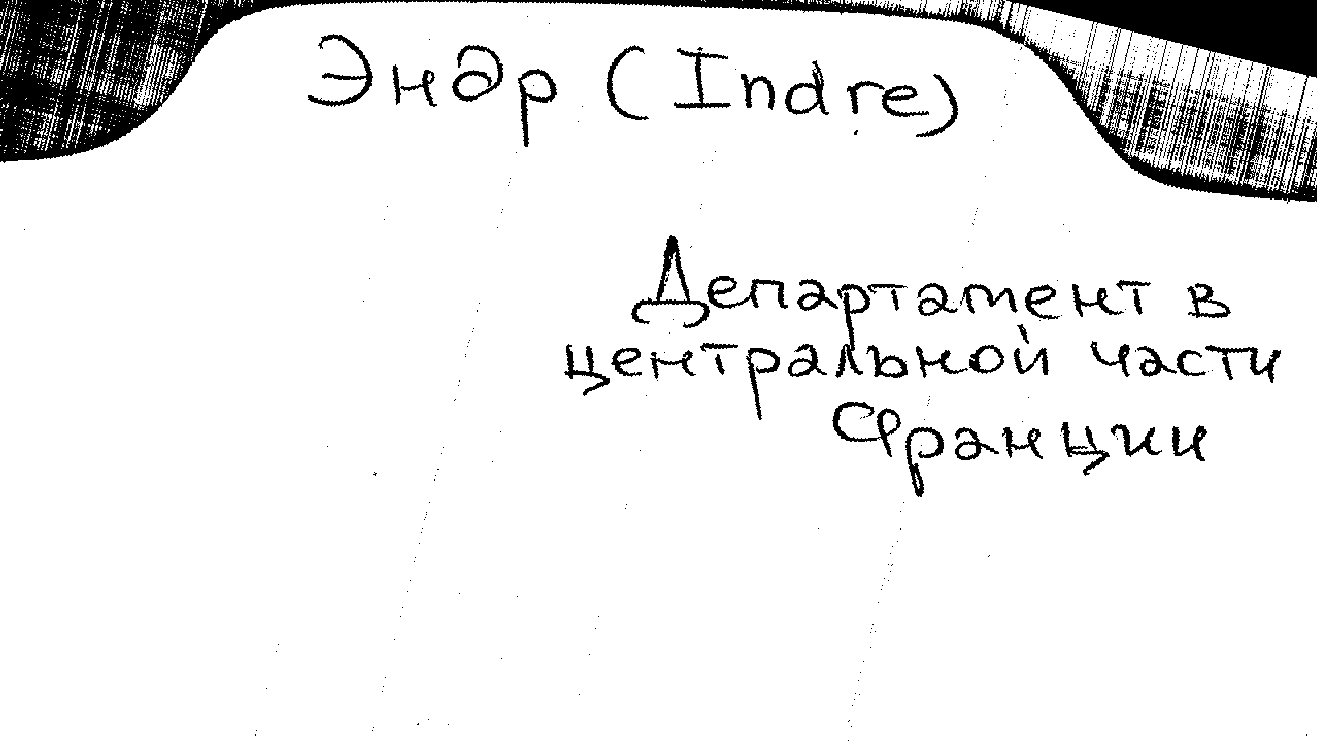 Эндр (Indre)
Департамент в
центральной части
Франции